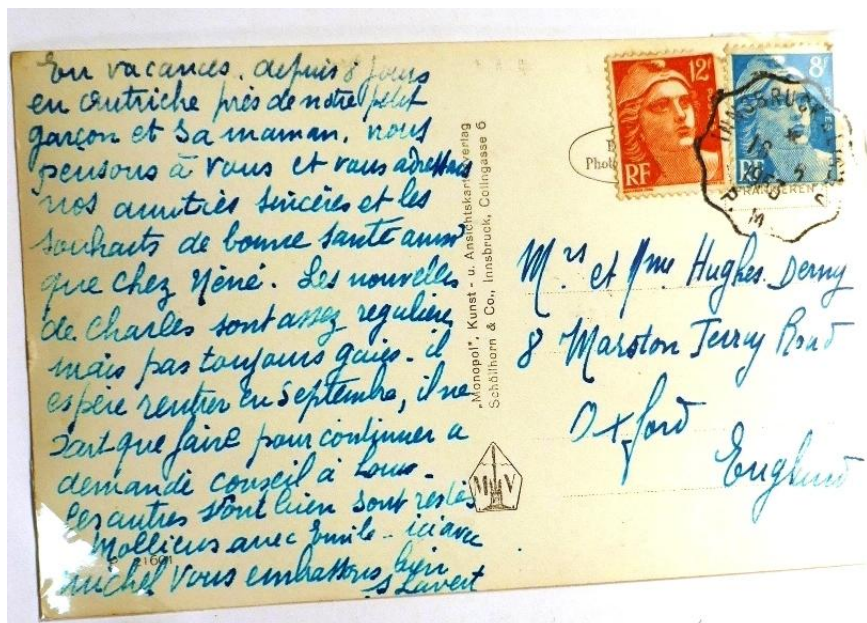 En vacances. depuis 8 jours
en Autriche près de notre petit
garçon et sa maman. nous
pensons à vous et vous adressons
nos amitiés sincères et les
souhaits de bonne santé ainsi
que chez Néné. Les nouvelles
de Charles sont assez régulières
mais pas toujours gaies - il
espère rentrer en Septembre, il ne
sait que faire pour continuer a
demandé conseil à tous -
les autres vont bien sont restés
Molliens avec Emile - ici avec
michel vous embrassons bien
"Monopol", Kunst- u. Ansichtskartenverlag
Schöllhorn & Co., Innsbruck, Collingasse 6
M V
21601
12f
RF
8f
RF
INNSBRUCK
Photo
FRANKIEREN
Mrs et Mme Hughes. Derny
8 Marston Ferry Road
Oxford
England